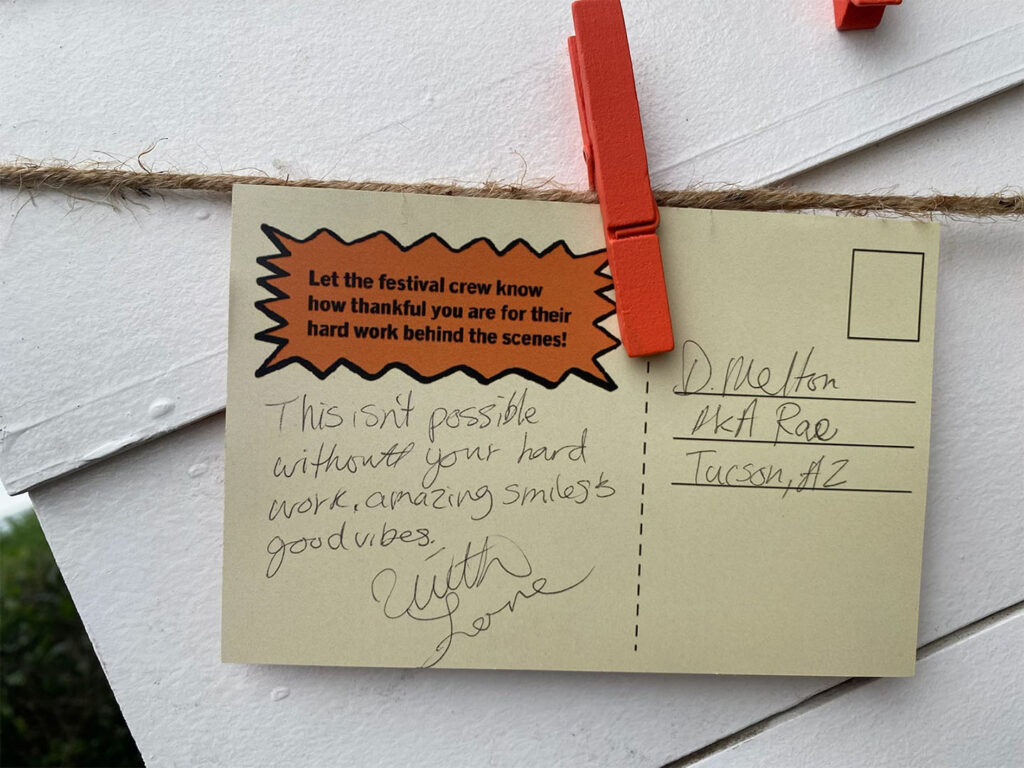 Let the festival crew know
how thankful you are for their
hard work behind the scenes!
This isn't possible
without your hard
work, amazing smiles &
good vibes.
With
Love
D. Melton
AKA Rae
Tucson, AZ